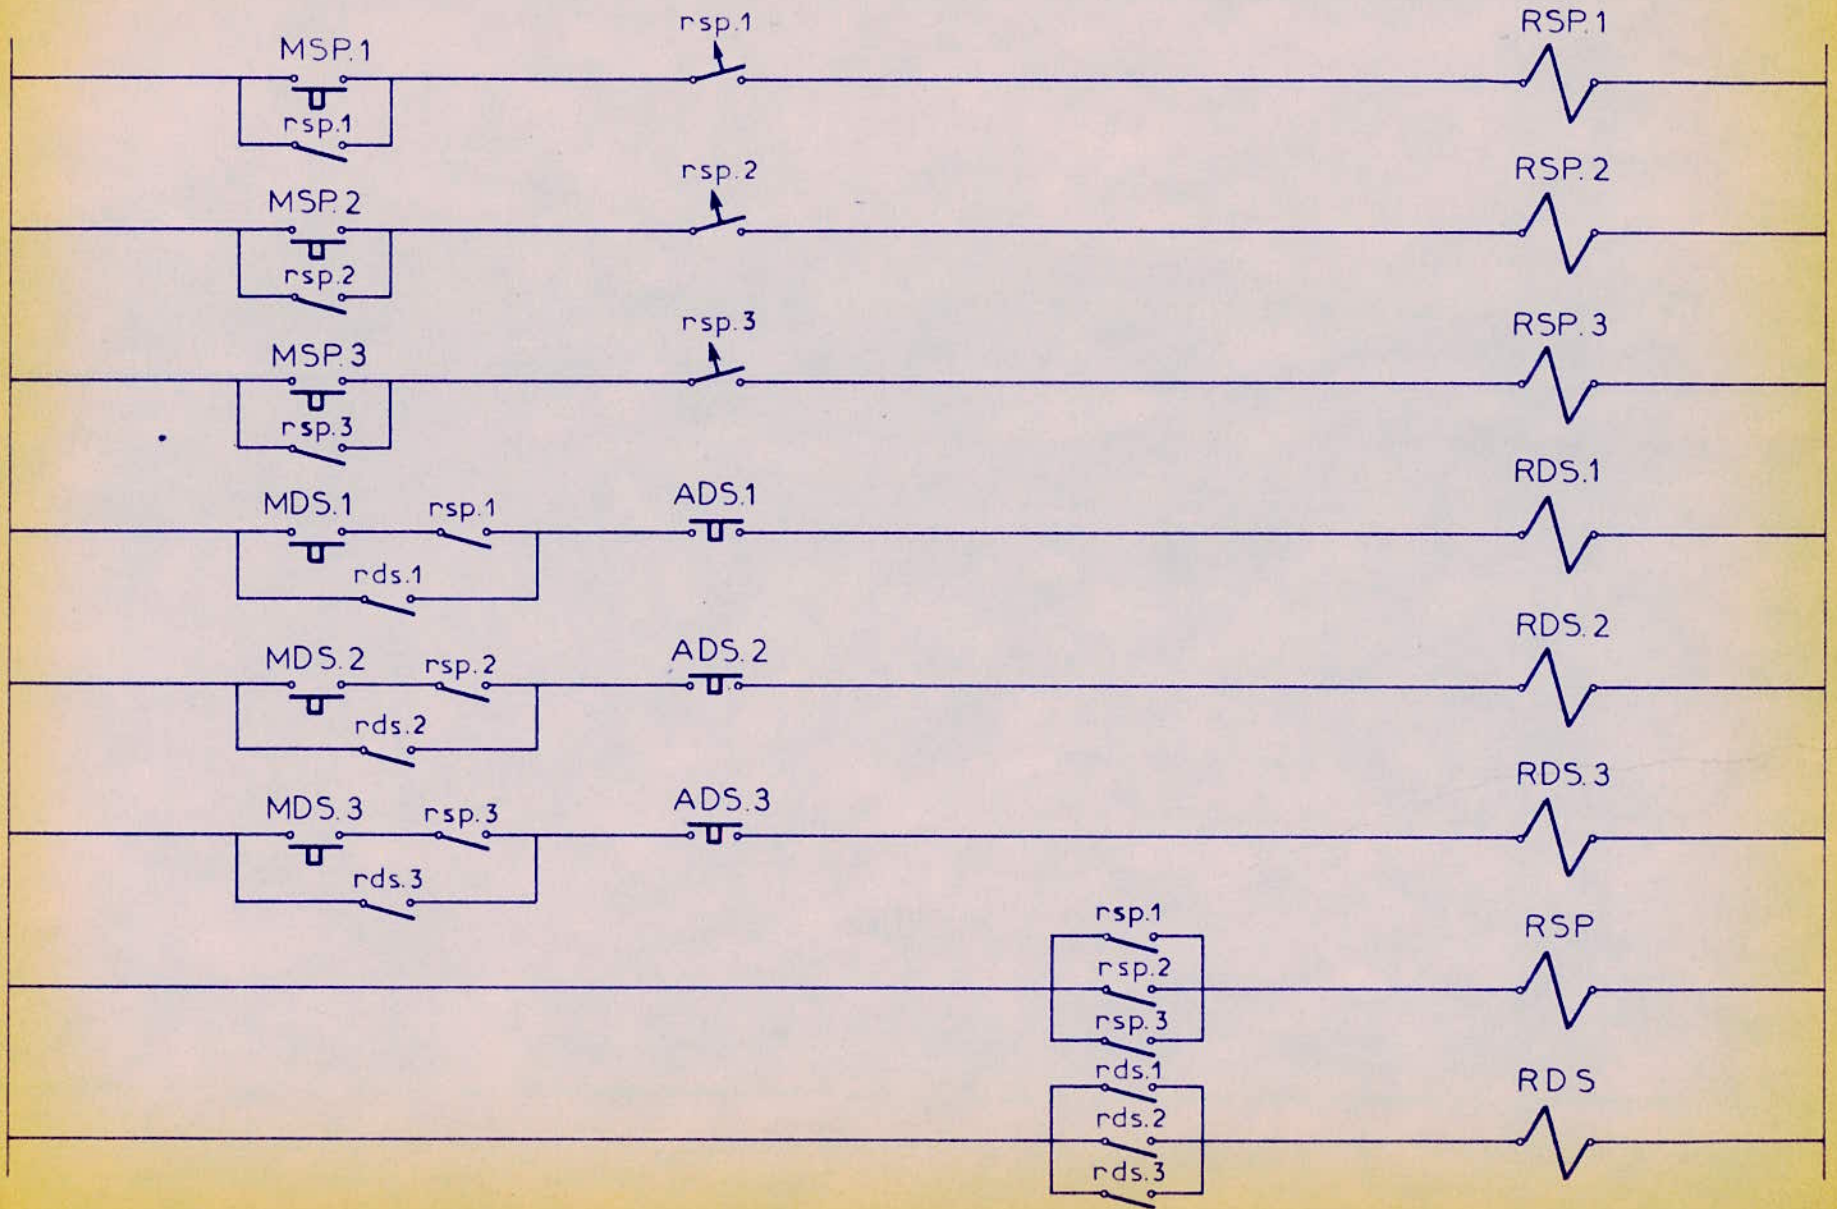 rsp.1
RSP.1
MSP.1
rsp.1
rsp.2
RSP.2
MSP.2
rsp.2
rsp.3
RSP.3
MSP.3
rsp.3
MDS.1 rsp.1 ADS.1 RDS.1
rds.1
MDS.2 rsp.2 ADS.2 RDS.2
rds.2
MDS.3 rsp.3 ADS.3 RDS.3
rds.3
rsp.1 RSP
rsp.2
rsp.3
rds.1 RDS
rds.2
rds.3